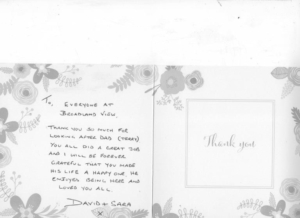 To,
EVERYONE AT
BROADLAND VIEW
THANK YOU SO MUCH FOR
LOOKING AFTER DAD (TERRY)
YOU ALL DID A GREAT JOB
AND I WILL BE FOREVER
GRATEFUL THAT YOU MADE
HIS LIFE A HAPPY ONE. HE
ENJOYED BEING HERE AND
LOVED YOU ALL
DAVID + CARA
X
Thank you